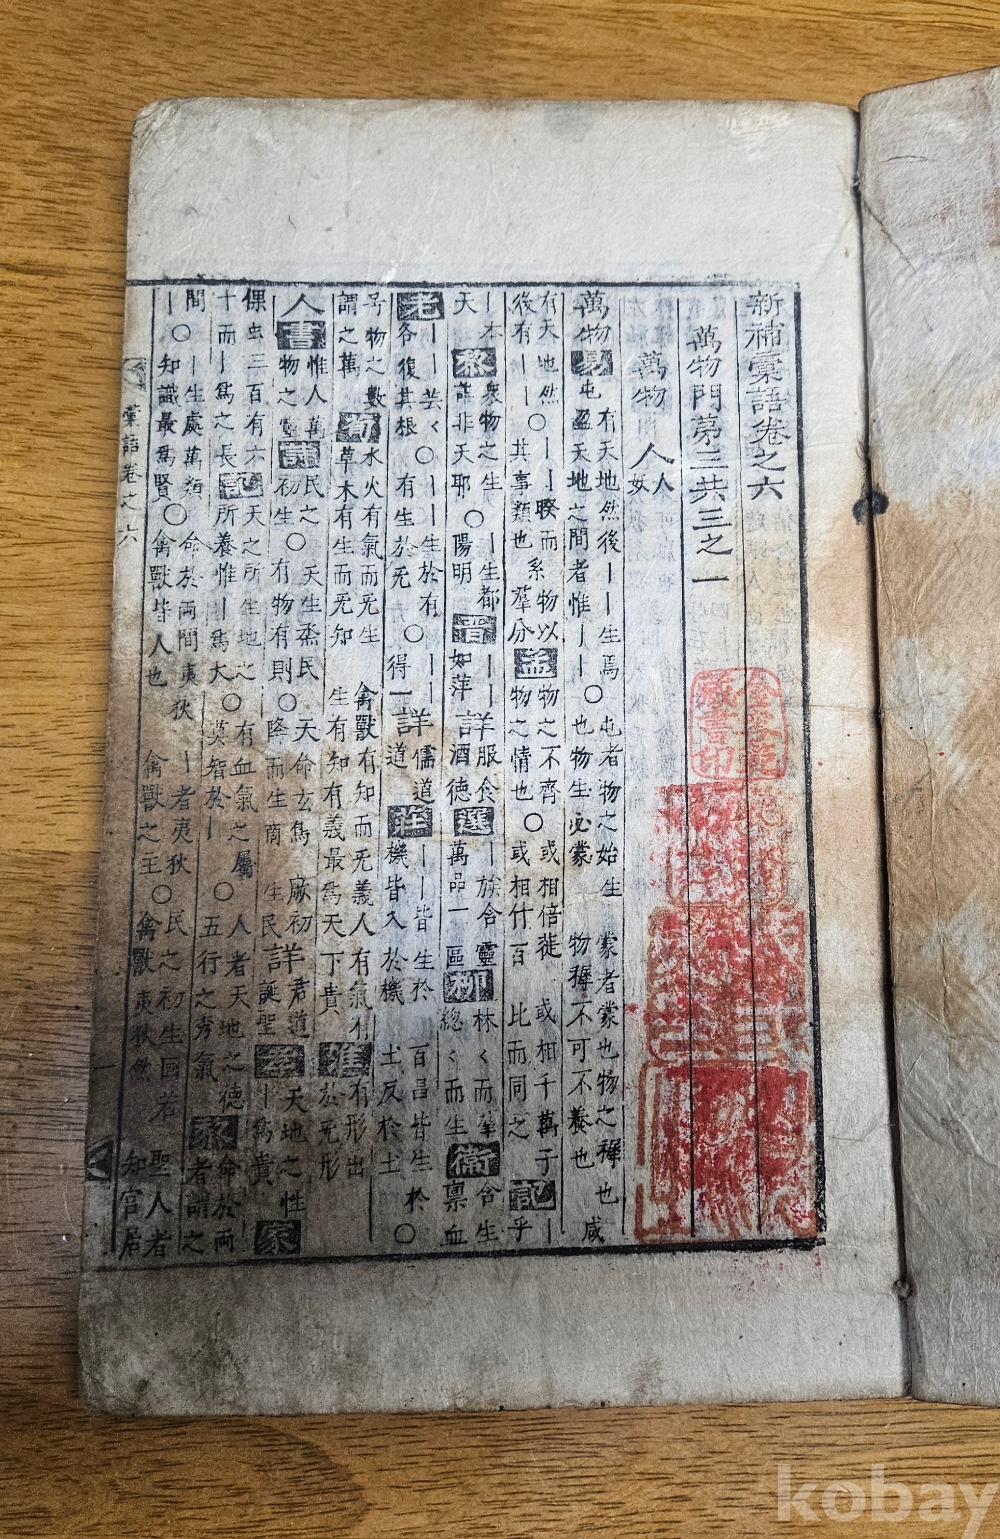 新補彙語卷之六
萬物門第二共三之一
萬物 人 人妖
萬物易有天地然後丨丨生焉 屯盈天地之間者惟丨丨〇屯者物之始生也物生必蒙 蒙者蒙也物之穉也物穉不可不養也 咸
有天地然後有丨丨〇丨丨睽而其事類也 系羣分 物以孟物之不齊物之情也〇或相倍蓰或相什百 或相千萬子比而同之 記丨乎
天丨本 黎衆物之生謂非天耶〇陽明丨生都 晋丨丨如萍 詳服食酒德 選丨族含靈萬品一區 柳林〻而羣總〻而生 衞含生禀血
老丨丨芸〻各復其根〇丨丨生於有 有生於无〇得一丨丨 詳儒道道 莊丨丨皆生於機皆入於機 百昌皆生於土反於土〇
号物之數謂之萬 荀水火有氣而无生草木有生而无知 禽獸有知而无義人有氣有生有知有義最爲天下貴 淮有形出於无形
人書惟人萬物之靈 詩民之初生〇天生烝民有物有則〇天命玄鳥降而生商 厥初生民 詳君道誕聖 孝天地之性丨爲貴 家
倮虫三百有六十而丨爲之長 記天之所生地之所養惟丨爲大〇有血氣之屬莫智於丨〇人者天地之德五行之秀氣 黎命於兩者謂之
間丨〇丨生處萬類知識最爲賢〇命於兩間夷狄禽獸皆人也 丨者夷狄禽獸之主〇民之初生固若禽獸夷狄然 聖人者知宮居
彙語卷之六
一
kobay